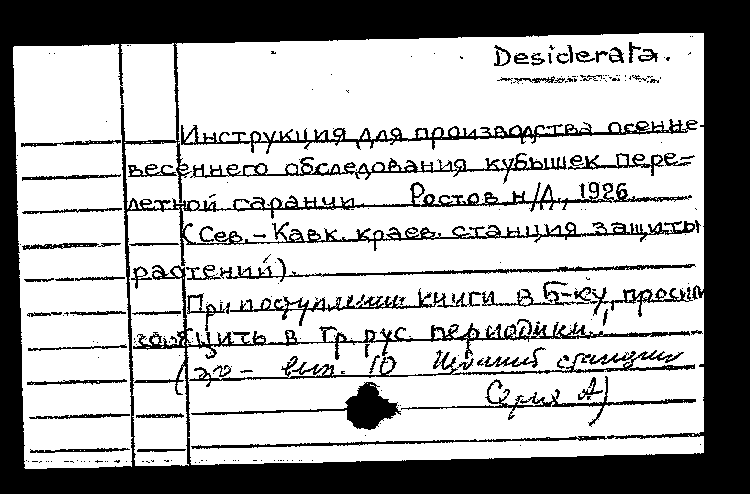 Desiderata.
Инструкция для производства осенне-
весеннего обследования кубышек пере=
летной саранчи. Ростов н/Д., 1926
(Сев.-Кавк. краев. станция защиты
растений).
При поступлении книги в Б-ку, просим
сообщить в Гр. рус. периодики!
(это - вып. 10 станции
Серия А)